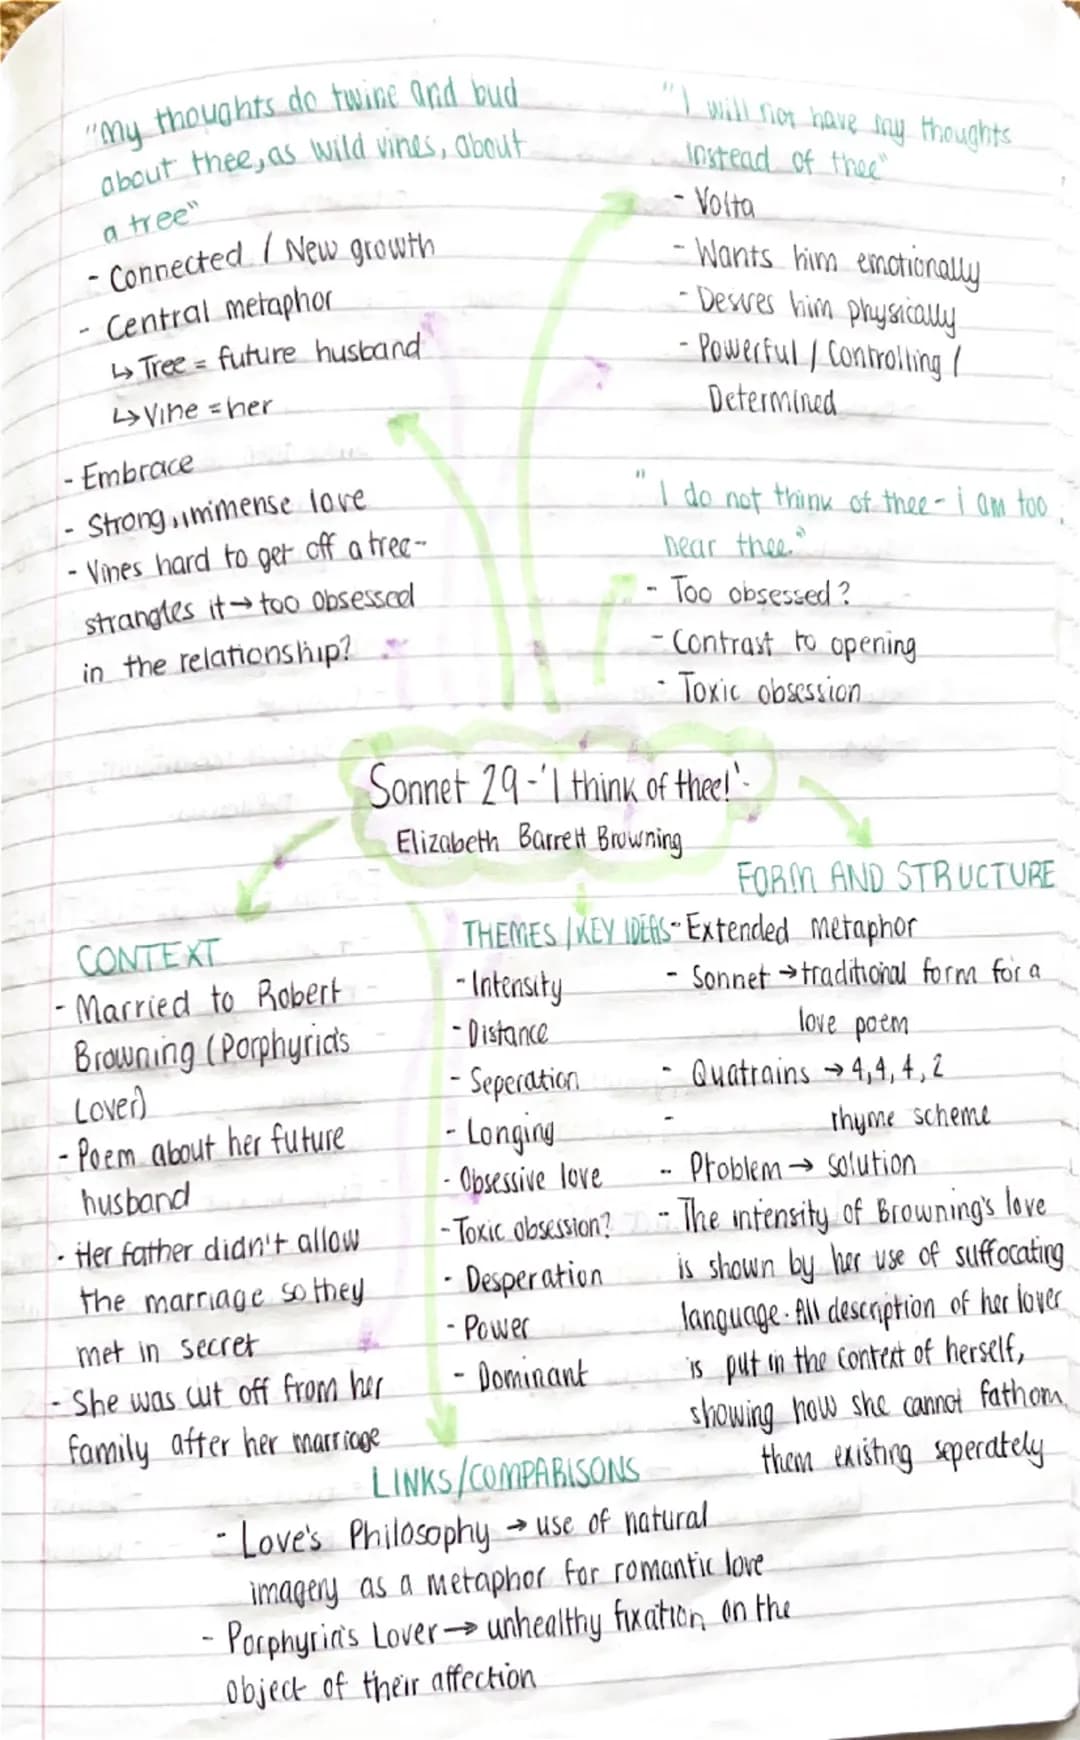 "My thoughts do twine and bud
about thee, as wild vines, about
a tree"
- Connected / New growth
- Central metaphor
↳ Tree = future husband
↳ Vine = her
- Embrace
- Strong, immense love
- Vines hard to get off a tree -
strangles it → too obsessed
in the relationship?
"I will not have my thoughts
instead of thee"
- Volta
- Wants him emotionally
- Desires him physically
- Powerful / Controlling /
Determined
"I do not think of thee - i am too
near thee."
- Too obsessed?
- Contrast to opening
- Toxic obsession
Sonnet 29 - 'I think of thee!' -
Elizabeth Barrett Browning
CONTEXT
- Married to Robert
Browning (Porphyria's
Lover)
- Poem about her future
husband
- Her father didn't allow
the marriage so they
met in secret
- She was cut off from her
family after her marriage
THEMES / KEY IDEAS
- Intensity
- Distance
- Seperation
- Longing
- Obsessive love
- Toxic obsession?
- Desperation
- Power
- Dominant
FORM AND STRUCTURE
- Extended metaphor
- Sonnet → traditional form for a
love poem
- Quatrains → 4,4,4,2
- rhyme scheme
- Problem → solution
- The intensity of Browning's love
is shown by her use of suffocating
language. All description of her lover
is put in the context of herself,
showing how she cannot fathom
them existing seperately
LINKS/COMPARISONS
- Love's Philosophy → use of natural
imagery as a metaphor for romantic love
- Porphyria's Lover → unhealthy fixation on the
object of their affection